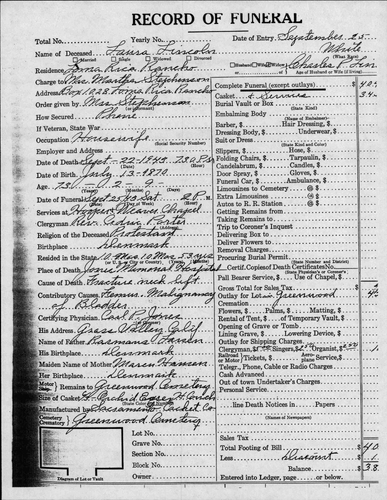 RECORD OF FUNERAL
Total No. Yearly No. Date of Entry September 25
Name of Deceased Laura Lincoln White
Married Single Widowed Divorced (What Race)
Residence Loma Rica Rancho Husband Wife Widow of Charles P.
Charge to Mrs. Martha Stephenson Age of Husband or Wife (if living)
Address Box 1028 Loma Rica Rancho
Order given by Mrs. Stephenson
How Secured Phone
If Veteran, State War
Occupation Housewife
Employer and Address
Date of Death Sept - 22 - 1943 - 7:30 P.M.
Date of Birth July - 13 - 1870
Age 73 - 2 - 9
Date of Funeral Sept 25/43 Sat. 2 P.M.
Services at Hooper Weaver Chapel
Clergyman Rev. Porter
Religion of the Deceased Protestant
Birthplace Denmark
Resided in the State 10 Mos
Place of Death Jones Memorial Hospital
Cause of Death Fracture neck left
Contributory Causes Femur, Malignancy
of Bladder
Certifying Physician Carl P. Jones
His Address Grass Valley Calif
Name of Father Rasmus Hansen
His Birthplace Denmark
Maiden Name of Mother Maria Hansen
Her Birthplace Denmark
Motor Ship to Greenwood Cemetery
Size of Casket
Manufactured by Sacramento Casket Co
Cemetery Crematory Greenwood Cemetery
Diagram of Lot or Vault
Lot No.
Grave No.
Section No.
Block No.
Owner
Complete Funeral (except outlays) $ 40
Casket & Services
Burial Vault or Box
(State Kind)
Embalming Body
(Name of Embalmer)
Barber, $ Hair Dressing, $
Dressing Body, $ Underwear, $
Suit or Dress
(State Kind and Color)
Slippers, $ Hose, $
Folding Chairs, $ Tarpaulin, $
Candelabrum, $ Candles, $
Door Spray, $ Gloves, $
Funeral Car, $ Ambulance, $
Limousines to Cemetery @ $
Extra Limousines @ $
Autos to R. R. Station @ $
Getting Remains from
Taking Remains to
Trip to Coroner's Inquest
Delivering Box to
Delivery Flowers to
Removal Charges
Procuring Burial Permit
(State Number and District)
Certif. Copies of Death Certificate No.
(State Physician's or Coroner's)
Pall Bearer Service, $ Use of Chapel, $
Gross Total for Sales Tax
Outlay for Lot in Greenwood
Cremation
Flowers, $ Palms, $ Matting, $
Rental of Tent, $ of Temporary Vault, $
Opening of Grave or Tomb
Lining Grave, $ Lowering Device, $
Outlay for Shipping Charges
Clergyman, $ Singers, $ Organist, $
Railroad Motor Tickets, $ Aeroplane Service, $
Telegr., Phone, Cable or Radio Charges
Cash Advanced
Out of town Undertaker's Charges
Personal Service
line Death Notices in Papers
(Names of Newspapers)
Sales Tax
Total Footing of Bill $ 40
Less Discount
Balance $ 38
Entered into Ledger, page or below.